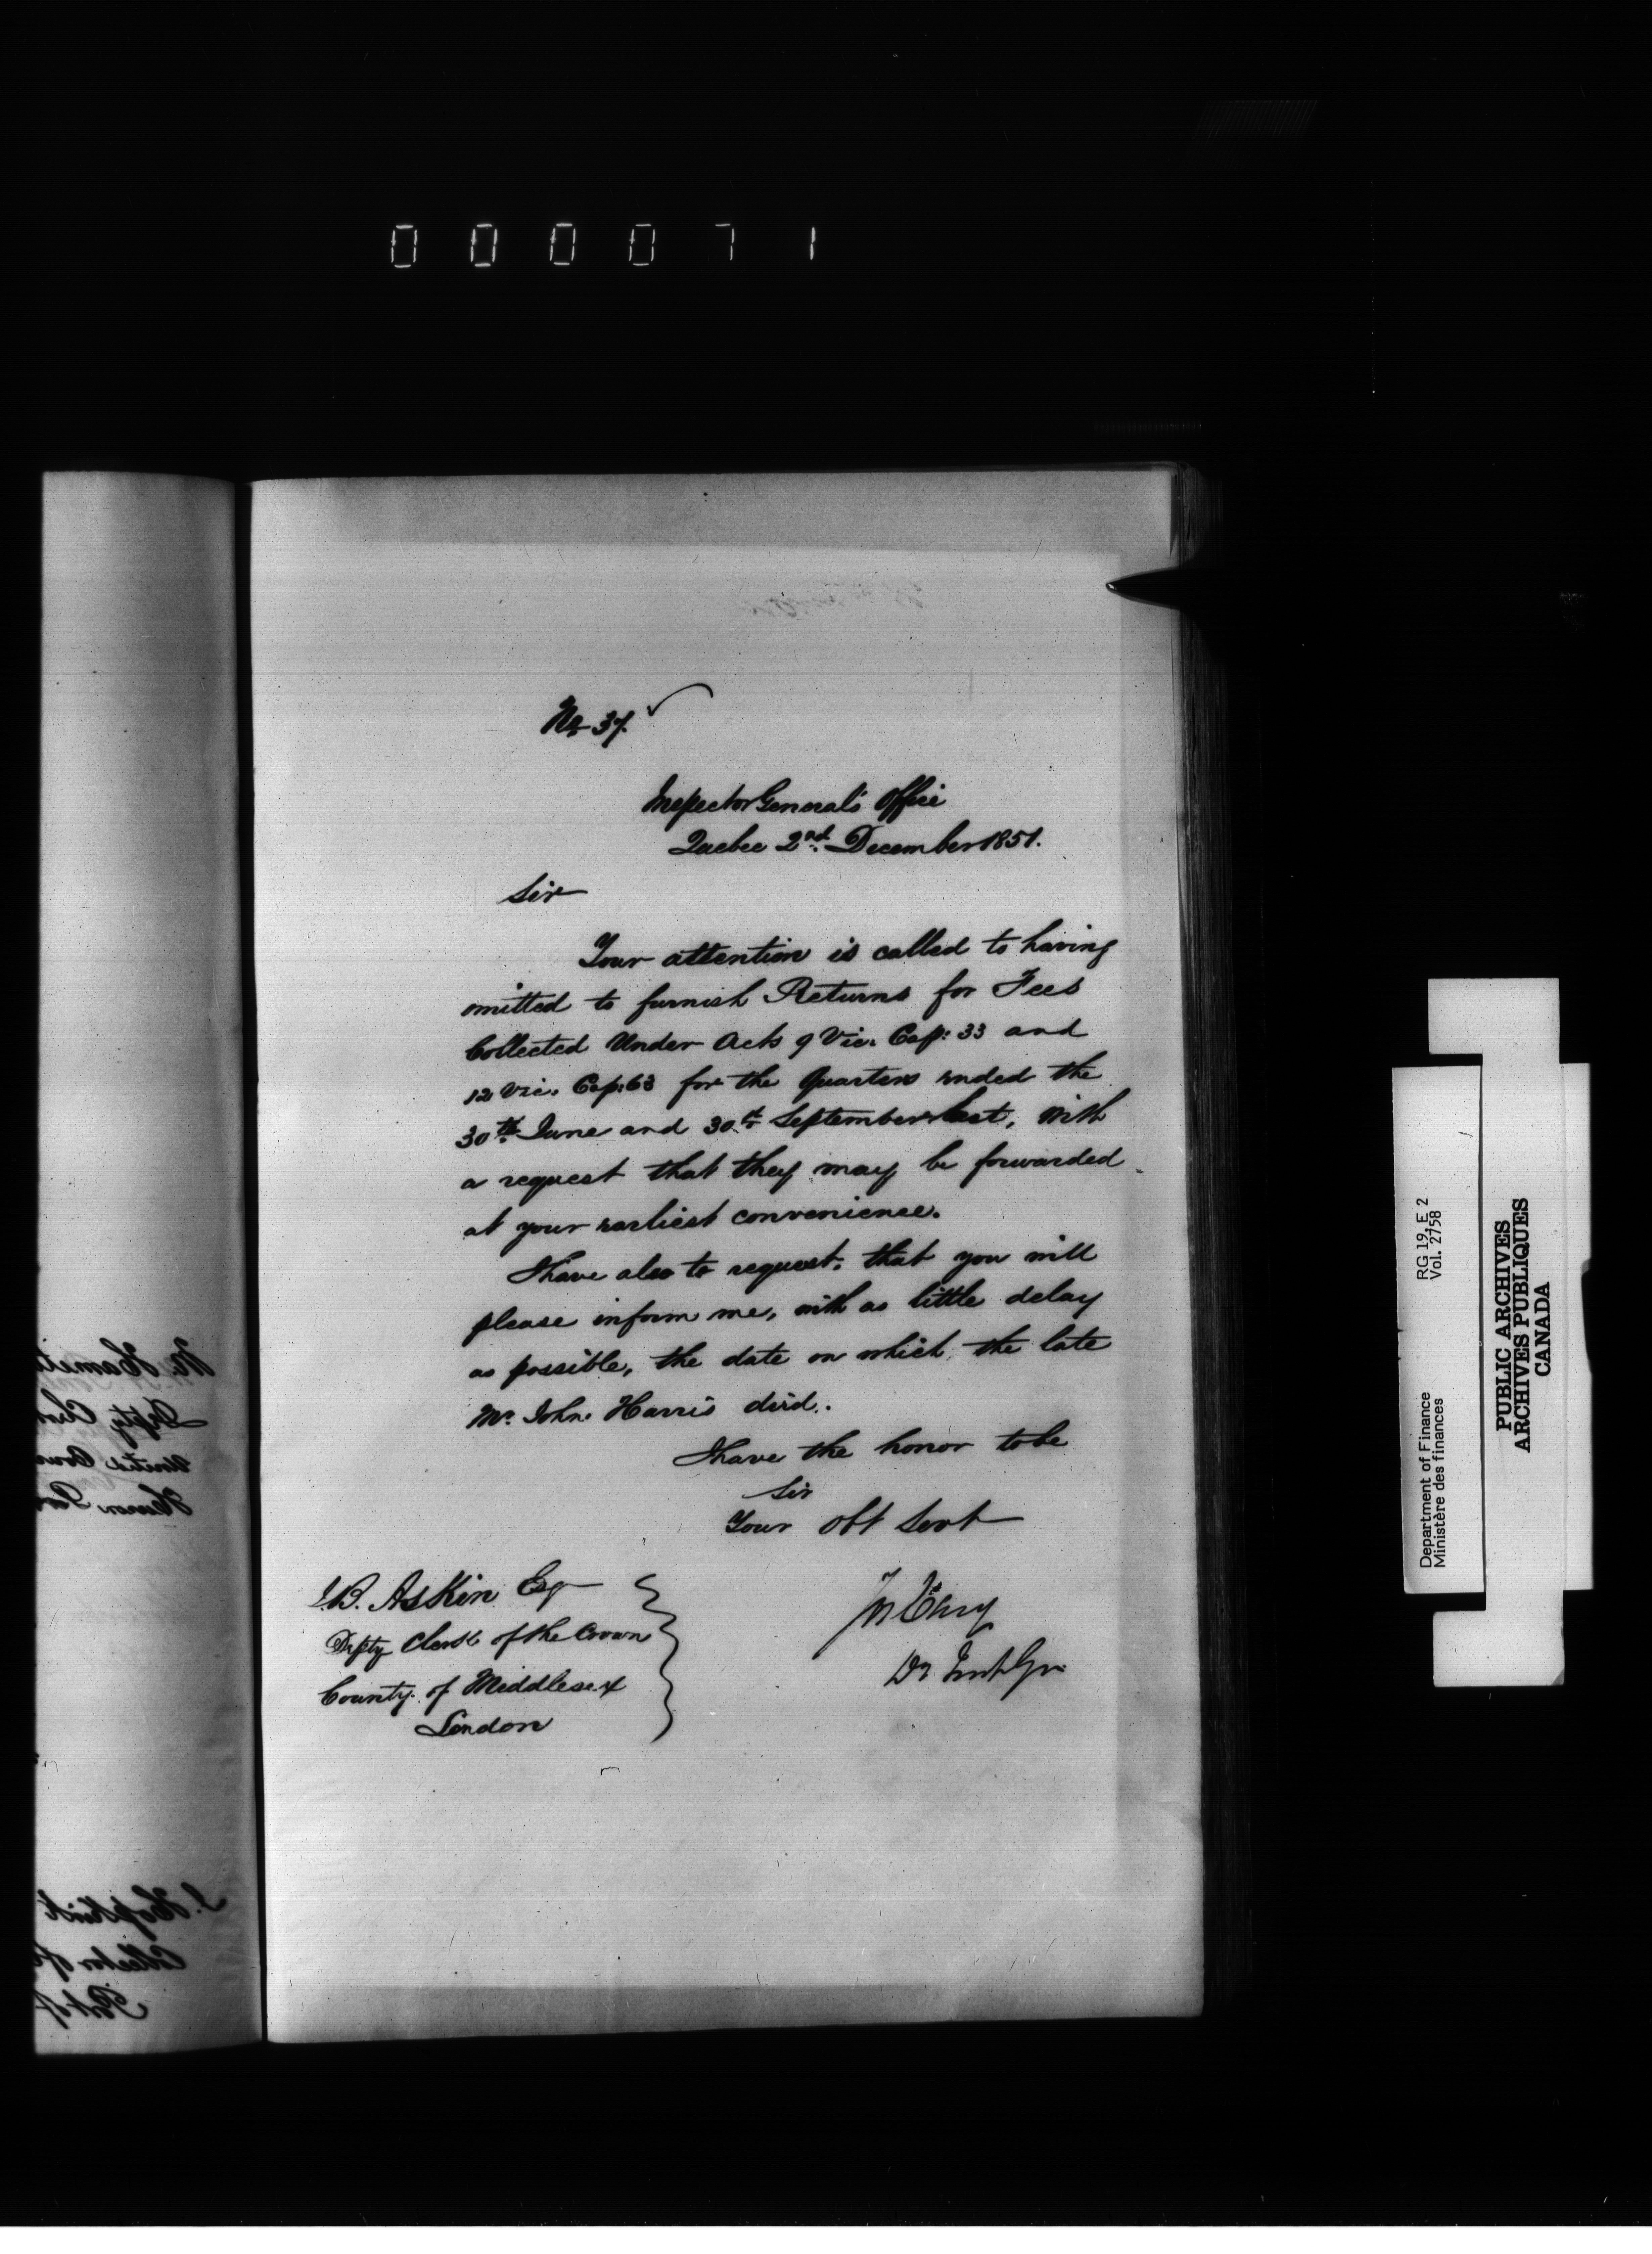 000071
No 37.
Inspector General's Office
Quebec 2nd. December 1851.
Sir
Your attention is called to having
omitted to furnish Returns for Fees
Collected Under Acts 9 Vic. Cap: 33 and
12 Vic. Cap: 63 for the Quarters ended the
30th June and 30th September last, with
a request that they may be forwarded
at your earliest convenience.
I have also to request, that you will
please inform me, with as little delay
as possible, the date on which, the late
Mr. John Harris died.
I have the honor to be
Sir
Your Obt Servt
J.B. Askin Esq
Depty Clerk of the Crown
County of Middlesex
London
Jos Cary
Dy Inspr Gen
Department of Finance RG 19, E 2
Ministère des finances Vol. 2758
PUBLIC ARCHIVES
ARCHIVES PUBLIQUES
CANADA